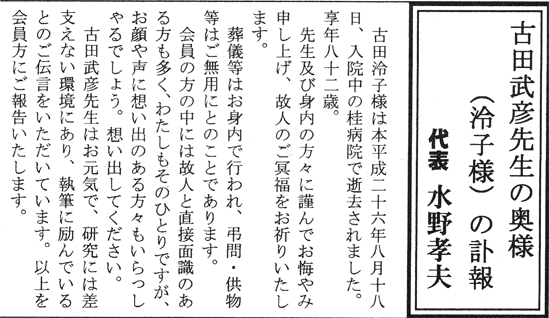 古田武彦先生の奥様
（泠子様）の訃報
代表 水野孝夫
古田泠子様は本平成二十六年八月十八
日、入院中の桂病院で逝去されました。
享年八十二歳。
先生及び身内の方々に謹んでお悔やみ
申し上げ、故人のご冥福をお祈りいたし
ます。
葬儀等はお身内で行われ、弔問・供物
等はご無用にとのことであります。
会員の方の中には故人と直接面識のあ
る方も多く、わたしもそのひとりですが、
お顔や声に想い出のある方々もいらっし
ゃるでしょう。想い出してください。
古田武彦先生はお元気で、研究には差
支えない環境にあり、執筆に励んでいる
とのご伝言をいただいています。以上を
会員方にご報告いたします。